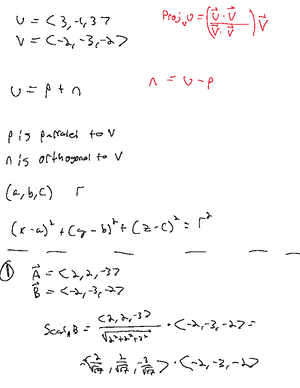 U = < 3, -1, 3 >
V = < -2, -3, -2 >
Proj_v U = ( U⃗ · V⃗ / V⃗ · V⃗ ) V⃗
U = P + n
n = U - P
P is parallel to V
n is orthogonal to V
(a, b, c) r
(x - a)² + (y - b)² + (z - c)² = r²
① A⃗ = < 2, 2, -3 >
B⃗ = < -2, -3, -2 >
Scal_A B = < 2, 2, -3 > / √(2² + 2² + 3²) · < -2, -3, -2 > =
< 2/√17, 2/√17, -3/√17 > · < -2, -3, -2 >